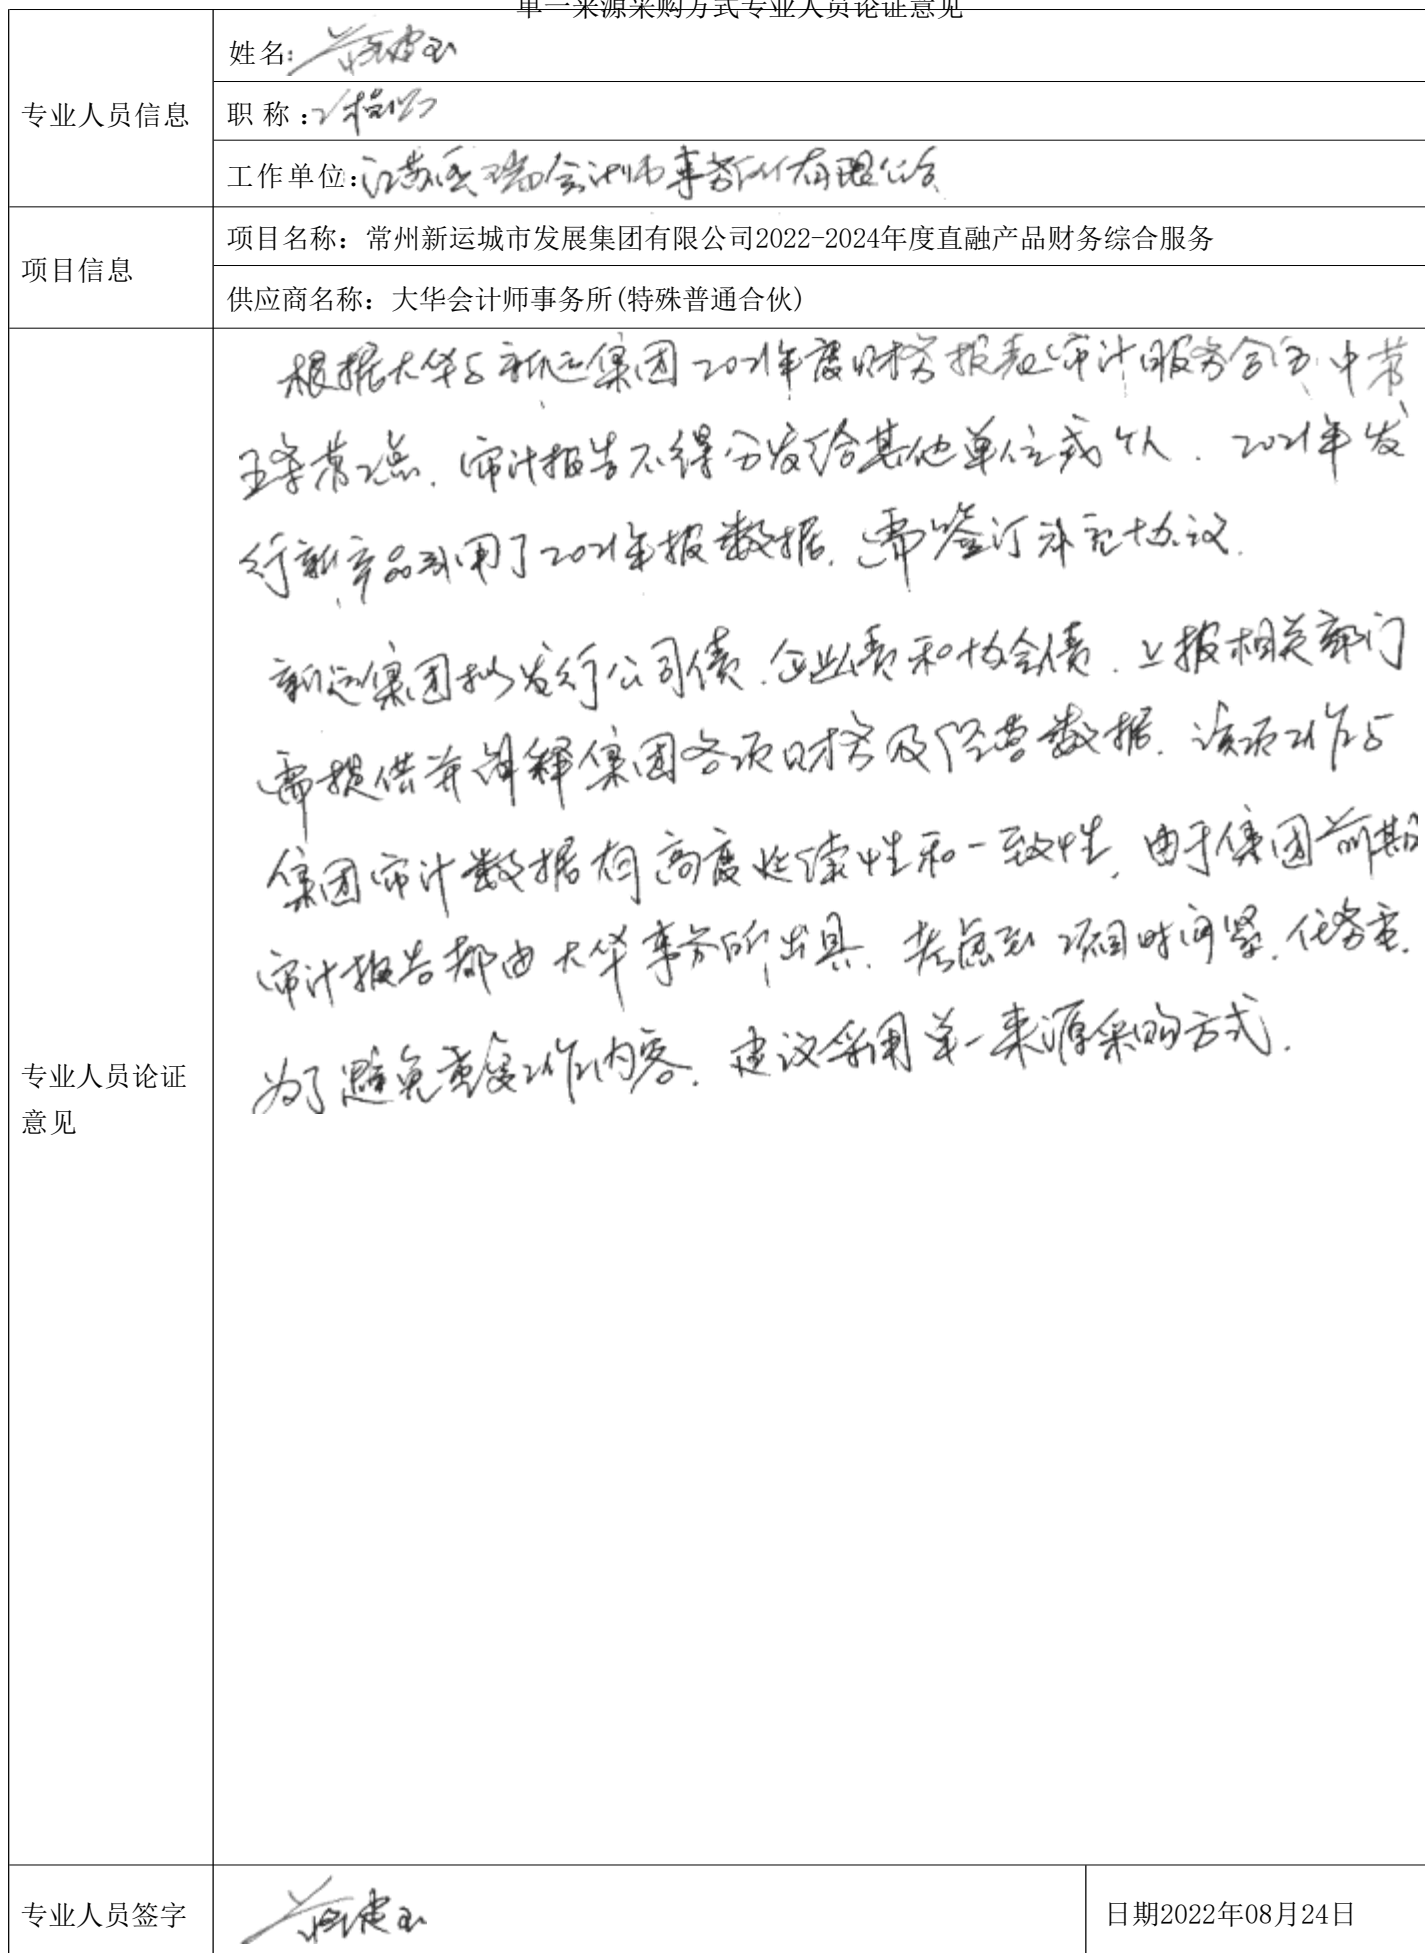 单一来源采购方式专业人员论证意见
专业人员信息
姓名:
职称:工程师
工作单位:江苏 瑞会计师事务所有限公司
项目信息
项目名称：常州新运城市发展集团有限公司2022-2024年度直融产品财务综合服务
供应商名称：大华会计师事务所(特殊普通合伙)
专业人员论证
意见
根据大华与新运集团2021年度财务报表审计服务合同中第
五条第2点,审计报告不得分发给其他单位或个人.2021年发
行新产品引用了2021年报数据,需签订补充协议.
新运集团拟发行公司债.企业债和协会债.上报相关部门
需提供并解释集团各项财务及经营数据.该项工作与
集团审计数据有高度延续性和一致性,由于集团前期
审计报告都由大华事务所出具.考虑到项目时间紧.任务重.
为了避免重复工作内容.建议采用单一来源采购方式.
专业人员签字
日期2022年08月24日